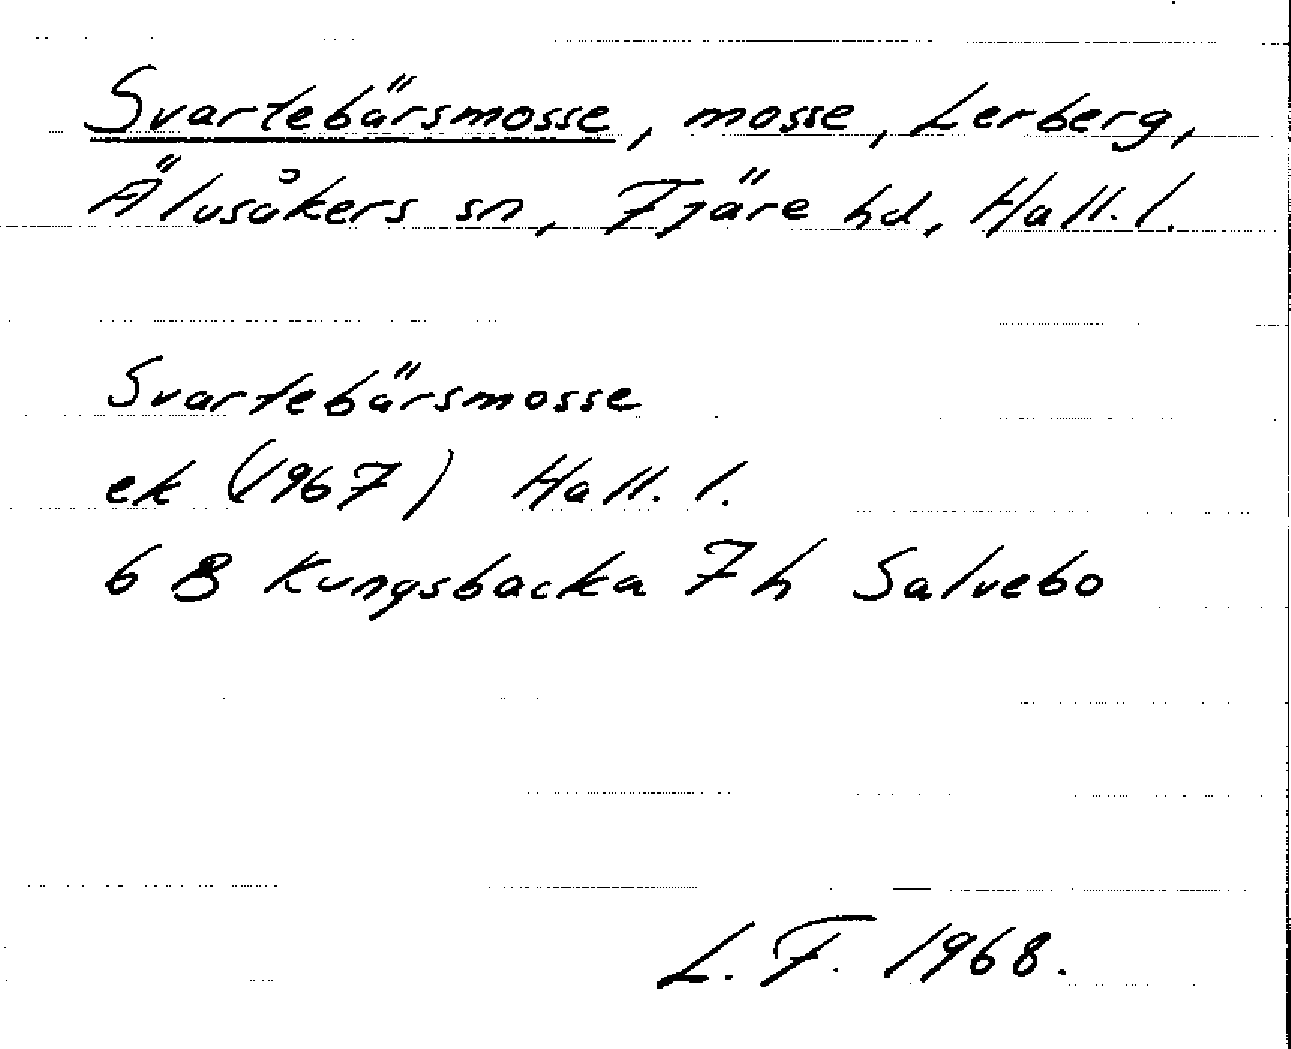 Svartebärsmosse, mosse, Lerberg,
Älvsåkers sn, Fjäre hd, Hall. l.
Svartebärsmosse
ek (1967) Hall. l.
6 B Kungsbacka 7 h Salvebo
L. F. 1968.